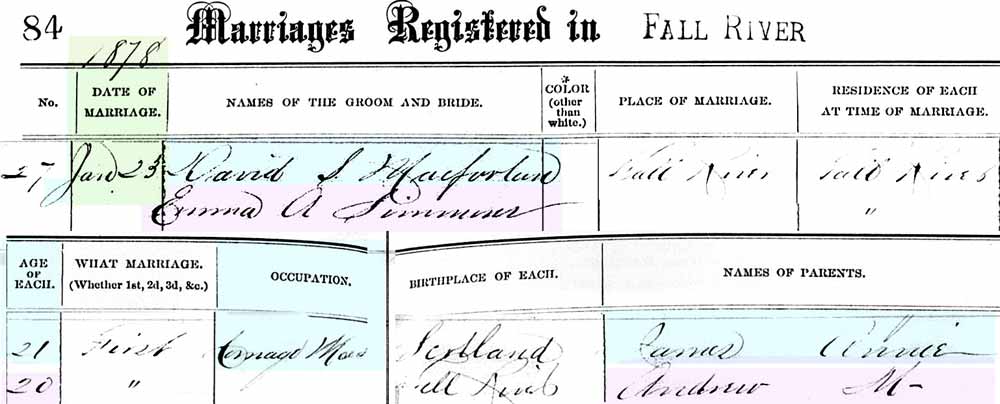 84 Marriages Registered in FALL RIVER
1878
No. DATE OF MARRIAGE. NAMES OF THE GROOM AND BRIDE. * COLOR (other than white.) PLACE OF MARRIAGE. RESIDENCE OF EACH AT TIME OF MARRIAGE.
27 Jan 25 David S Macforlund Fall River Fall River
Emma A Simmons "
AGE OF EACH. WHAT MARRIAGE. (Whether 1st, 2d, 3d, &c.) OCCUPATION. BIRTHPLACE OF EACH. NAMES OF PARENTS.
21 First Scotland James Annie
20 " Fall River Andrew M-